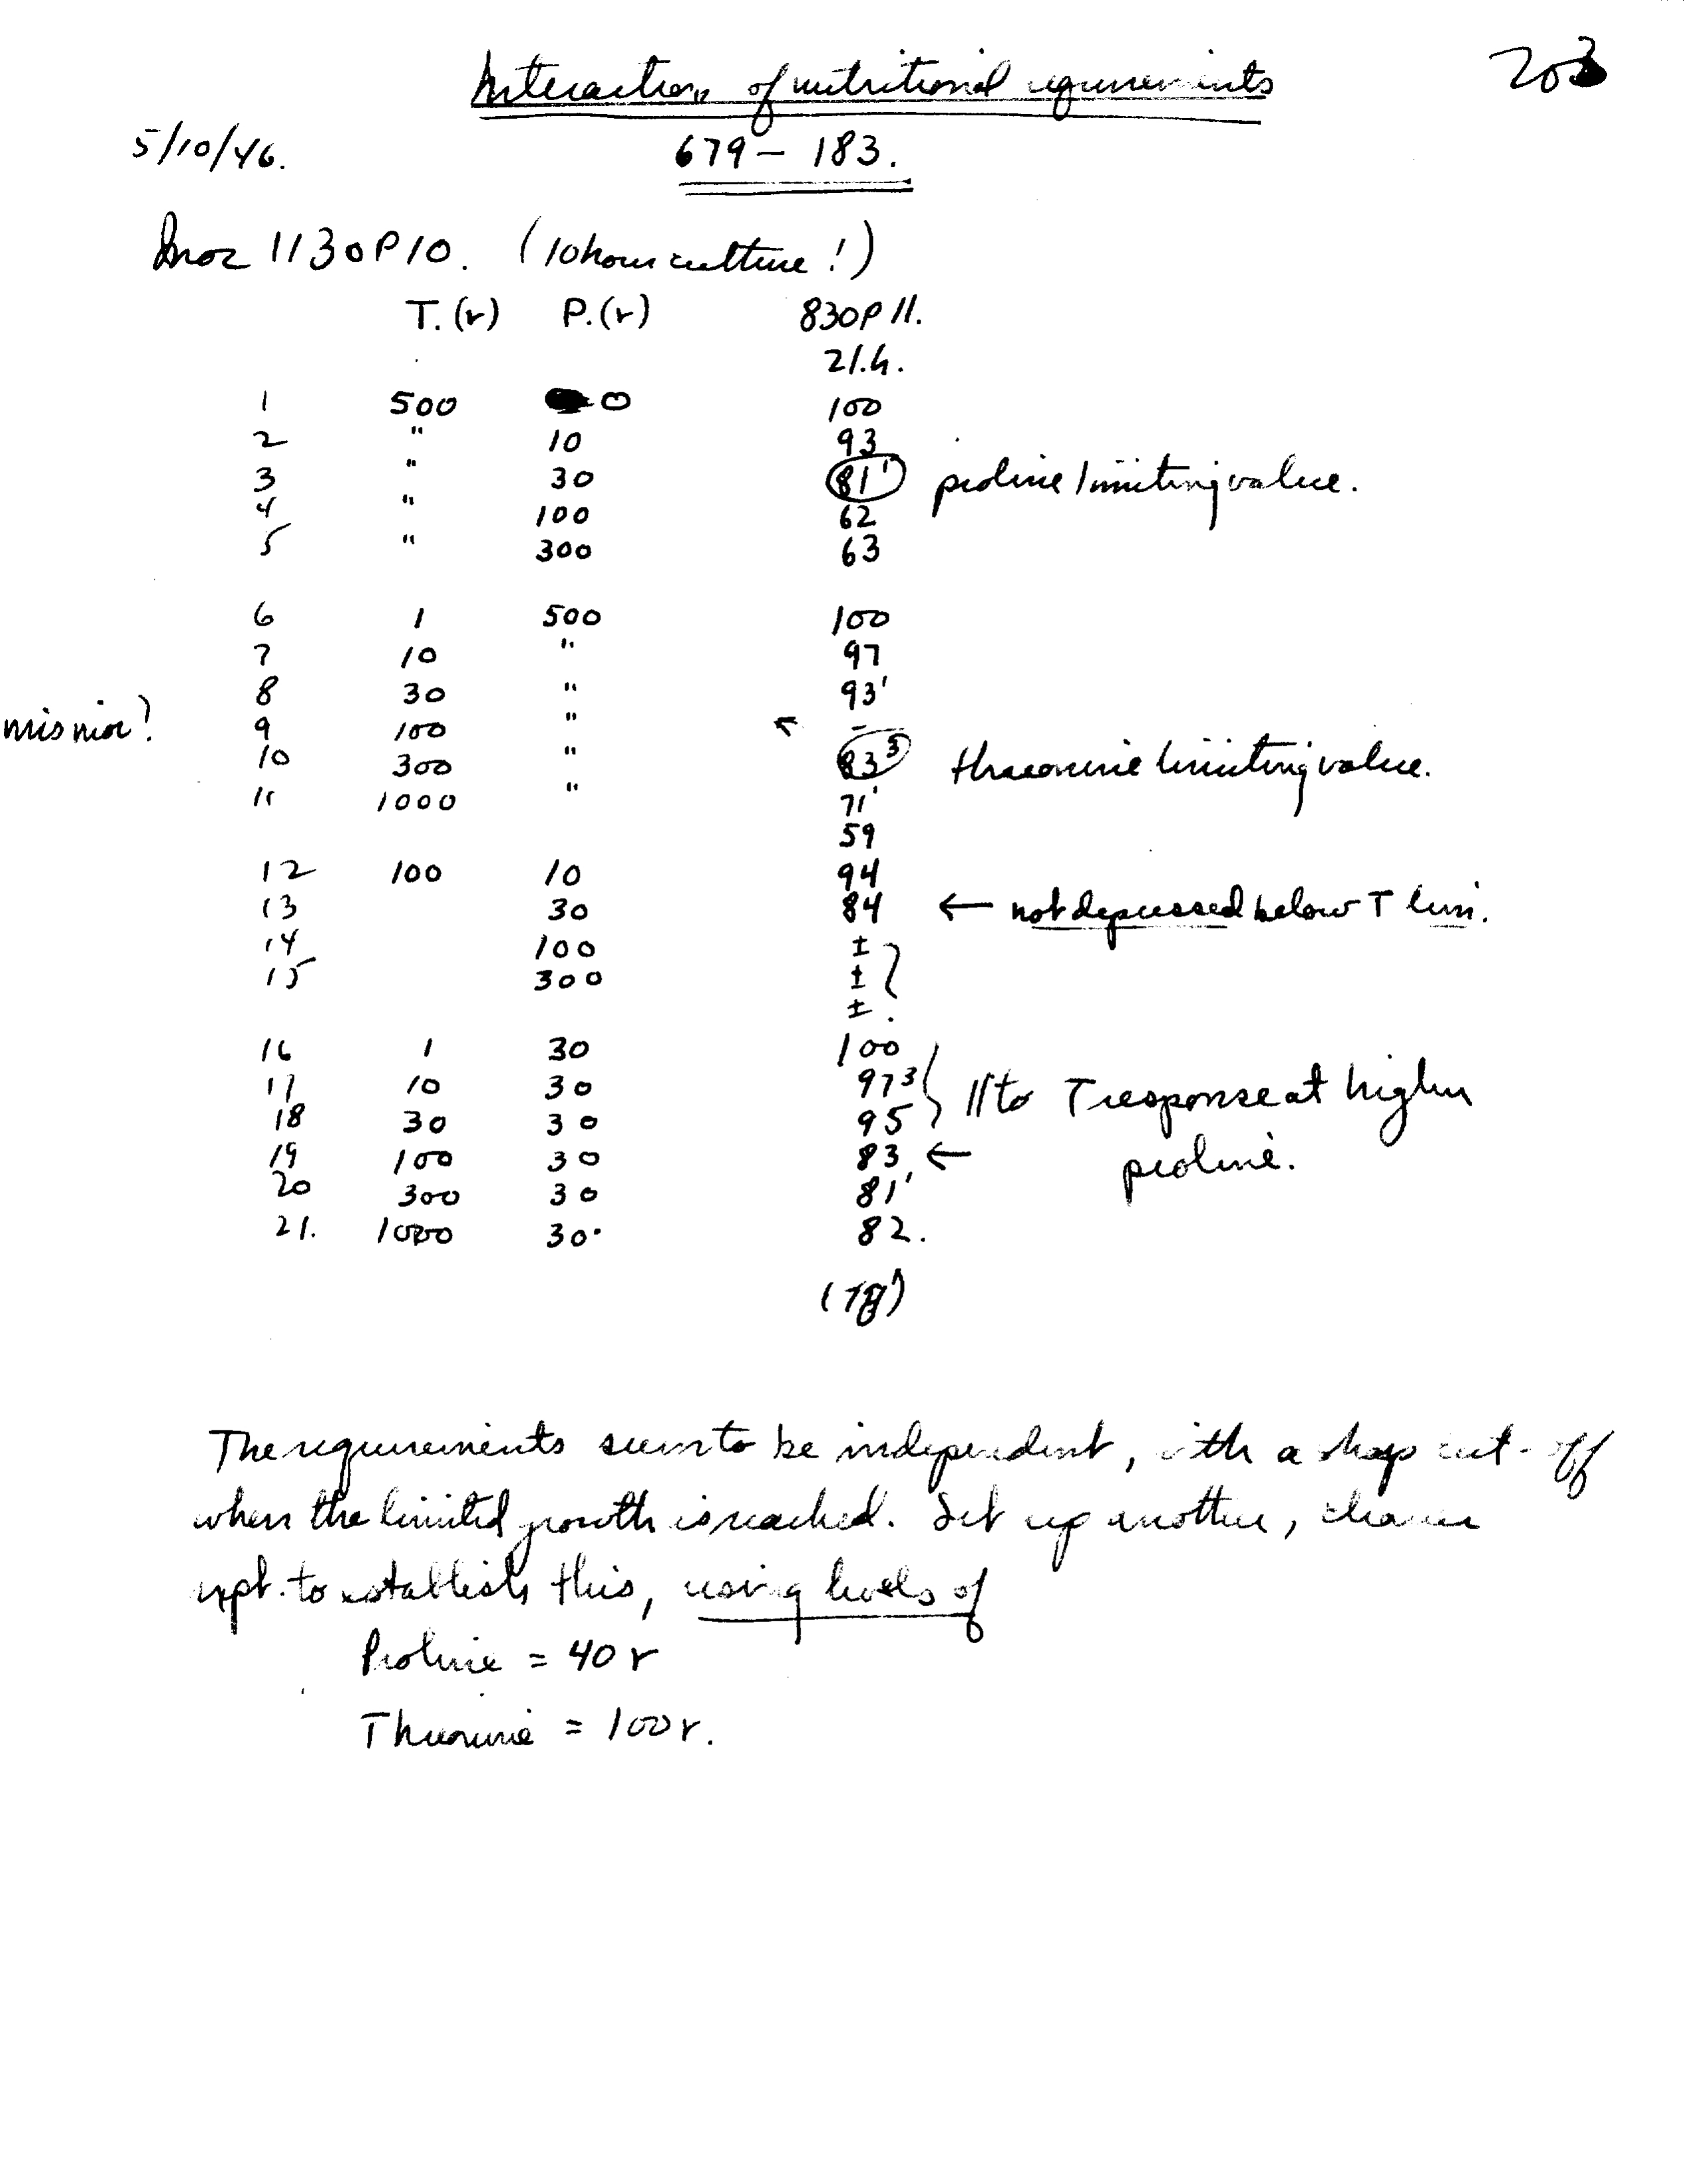 203
Interactions of nutritional requirements
5/10/46.
679 – 183.
Inoc 1130P10. (10 hour culture!)
T.(γ) P.(γ) 830P11.
21.h.
1 500 0 100
2 " 10 93
3 " 30 81' proline limiting value.
4 " 100 62
5 " 300 63
6 1 500 100
7 10 " 97
8 30 " 93'
misnior? 9 100 " ← –
10 300 " 83⁵ threonine limiting value.
11 1000 " 71'
59
12 100 10 94
13 30 84 ← not depressed below T lim.
14 100 ±
15 300 ±
±.
16 1 30 100
17 10 30 97³ // to T response at higher
18 30 30 95
19 100 30 83 ← proline.
20 300 30 81'
21. 1000 30. 82.
The requirements seem to be independent, with a sharp cut-off
when the limited growth is reached. Set up another, cleaner
expt. to establish this, using levels of
Proline = 40γ
Threonine = 100γ.